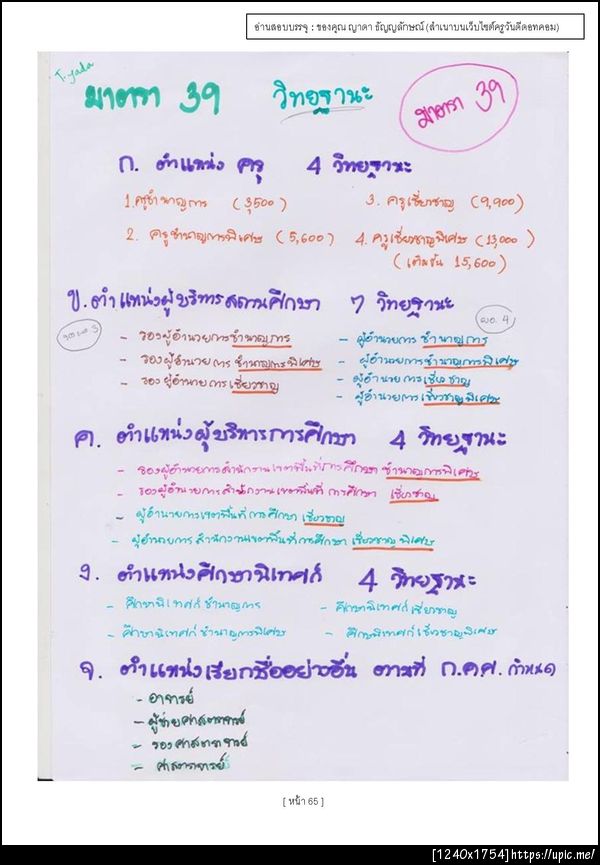 อ่านสอบบรรจุ : ของคุณ ญาดา ธัญญลักษณ์ (สำเนาบนเว็บไซต์ครูวันดีดอทคอม)
T-yada
มาตรา 39 วิทยฐานะ
มาตรา 39
ก. ตำแหน่ง ครู 4 วิทยฐานะ
1. ครูชำนาญการ (3,500) 3. ครูเชี่ยวชาญ (9,900)
2. ครูชำนาญการพิเศษ (5,600) 4. ครูเชี่ยวชาญพิเศษ (13,000)
(เต็มขั้น 15,600)
ข. ตำแหน่งผู้บริหารสถานศึกษา 7 วิทยฐานะ
รอง ผอ 3
ผอ. 4
- รองผู้อำนวยการชำนาญการ - ผู้อำนวยการ ชำนาญการ
- รองผู้อำนวยการ ชำนาญการพิเศษ - ผู้อำนวยการชำนาญการพิเศษ
- รองผู้อำนวยการ เชี่ยวชาญ - ผู้อำนวยการ เชี่ยวชาญ
- ผู้อำนวยการ เชี่ยวชาญพิเศษ
ค. ตำแหน่งผู้บริหารการศึกษา 4 วิทยฐานะ
- รองผู้อำนวยการสำนักงานเขตพื้นที่การศึกษา ชำนาญการพิเศษ
- รองผู้อำนวยการสำนักงานเขตพื้นที่ การศึกษา เชี่ยวชาญ
- ผู้อำนวยการเขตพื้นที่การศึกษา เชี่ยวชาญ
- ผู้อำนวยการ สำนักงานเขตพื้นที่การศึกษา เชี่ยวชาญ พิเศษ
ง. ตำแหน่งศึกษานิเทศก์ 4 วิทยฐานะ
- ศึกษานิเทศก์ ชำนาญการ - ศึกษานิเทศก์ เชี่ยวชาญ
- ศึกษานิเทศก์ชำนาญการพิเศษ - ศึกษานิเทศก์ เชี่ยวชาญพิเศษ
จ. ตำแหน่งเรียกชื่ออย่างอื่น ตามที่ ก.ค.ศ. กำหนด
- อาจารย์
- ผู้ช่วยศาสตราจารย์
- รองศาสตราจารย์
- ศาสตราจารย์
[ หน้า 65 ]
[1240x1754]https://upic.me/